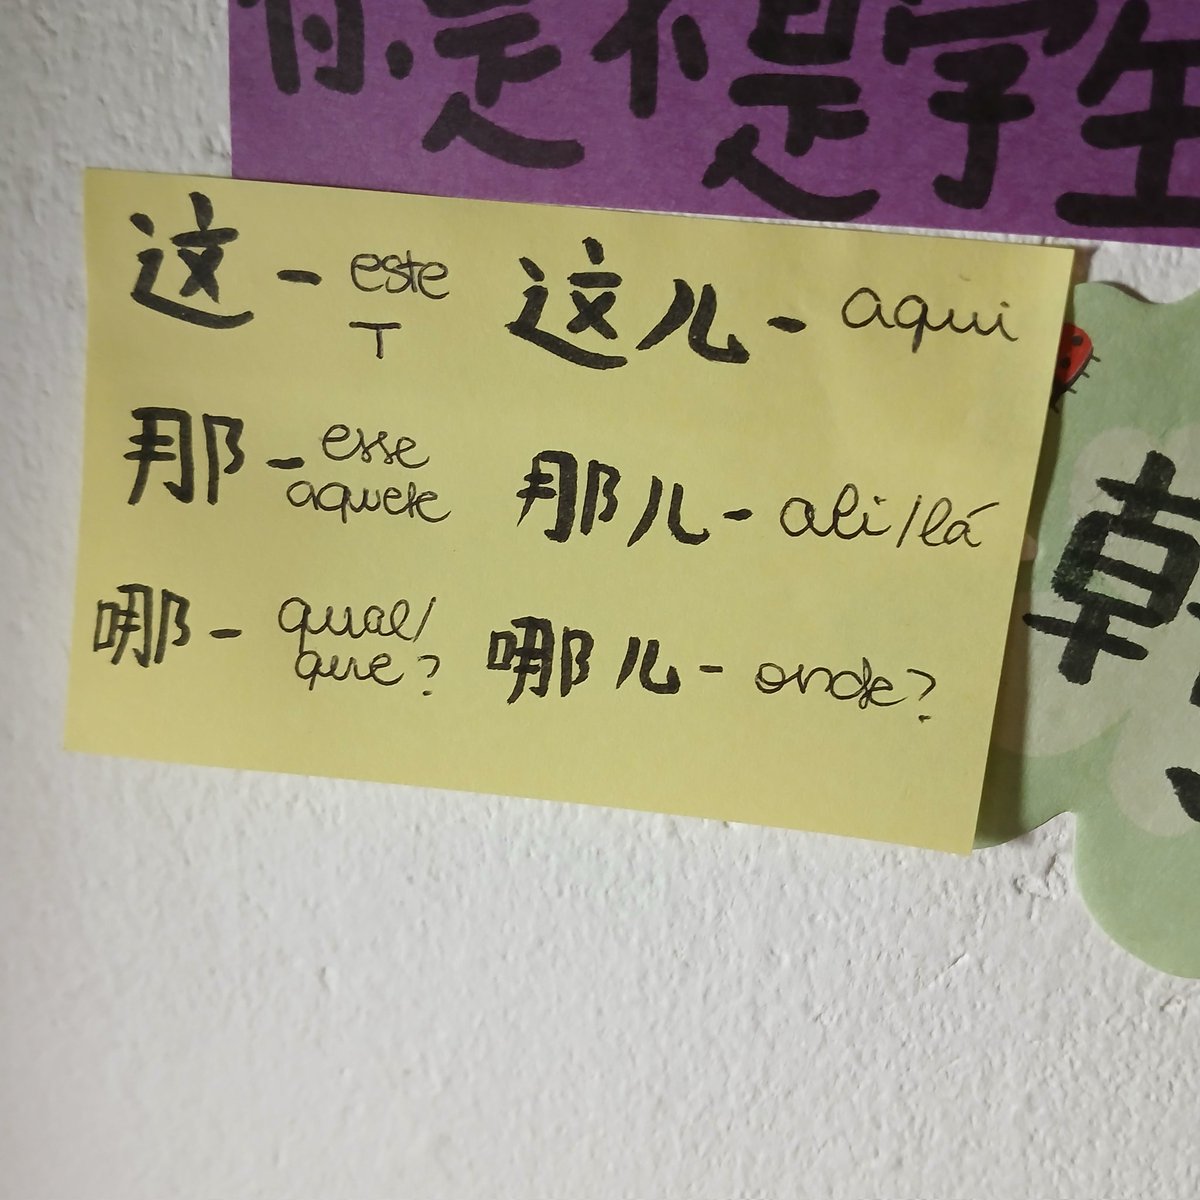 是不是学生
这 - este 这儿 - aqui
T
那 - esse 那儿 - ali/lá
aquele
哪 - qual/ 哪儿 - onde?
que?